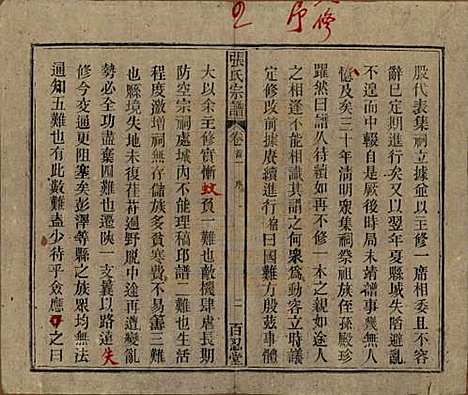 股代表集祠立據僉以主修一席相委不
辭已定期進行矣又以翌年夏縣城失陷避亂
不遑而中輟自是厥後時局未靖譜事幾無人
憶及矣三十年清明衆集祠祭祖族侄孫殿珍
躍然曰譜乃待續如不能修一木之見如途人
之相逢不能相其譜之何衆為動客立時議
定修改前據賡續進行 曰國難方殷茲事體
張氏宗譜 卷首 序 二 百忍堂
大以余主修實慚蚊負一難也敵機肆虐長期
防空宗祠處城內不能理稿印譜二難也生活
程度激增祠無存儲族多貧寒費不易籌三難
也縣境失地未復荏苻遍野脫中途再遭變亂
勢必全功盡棄四難也送譜一支異以路遠失
修今交通更阻塞矣彭澤等縣之族衆均無法
通知五難也有此數難盍少待乎僉應 之曰
二 序 修